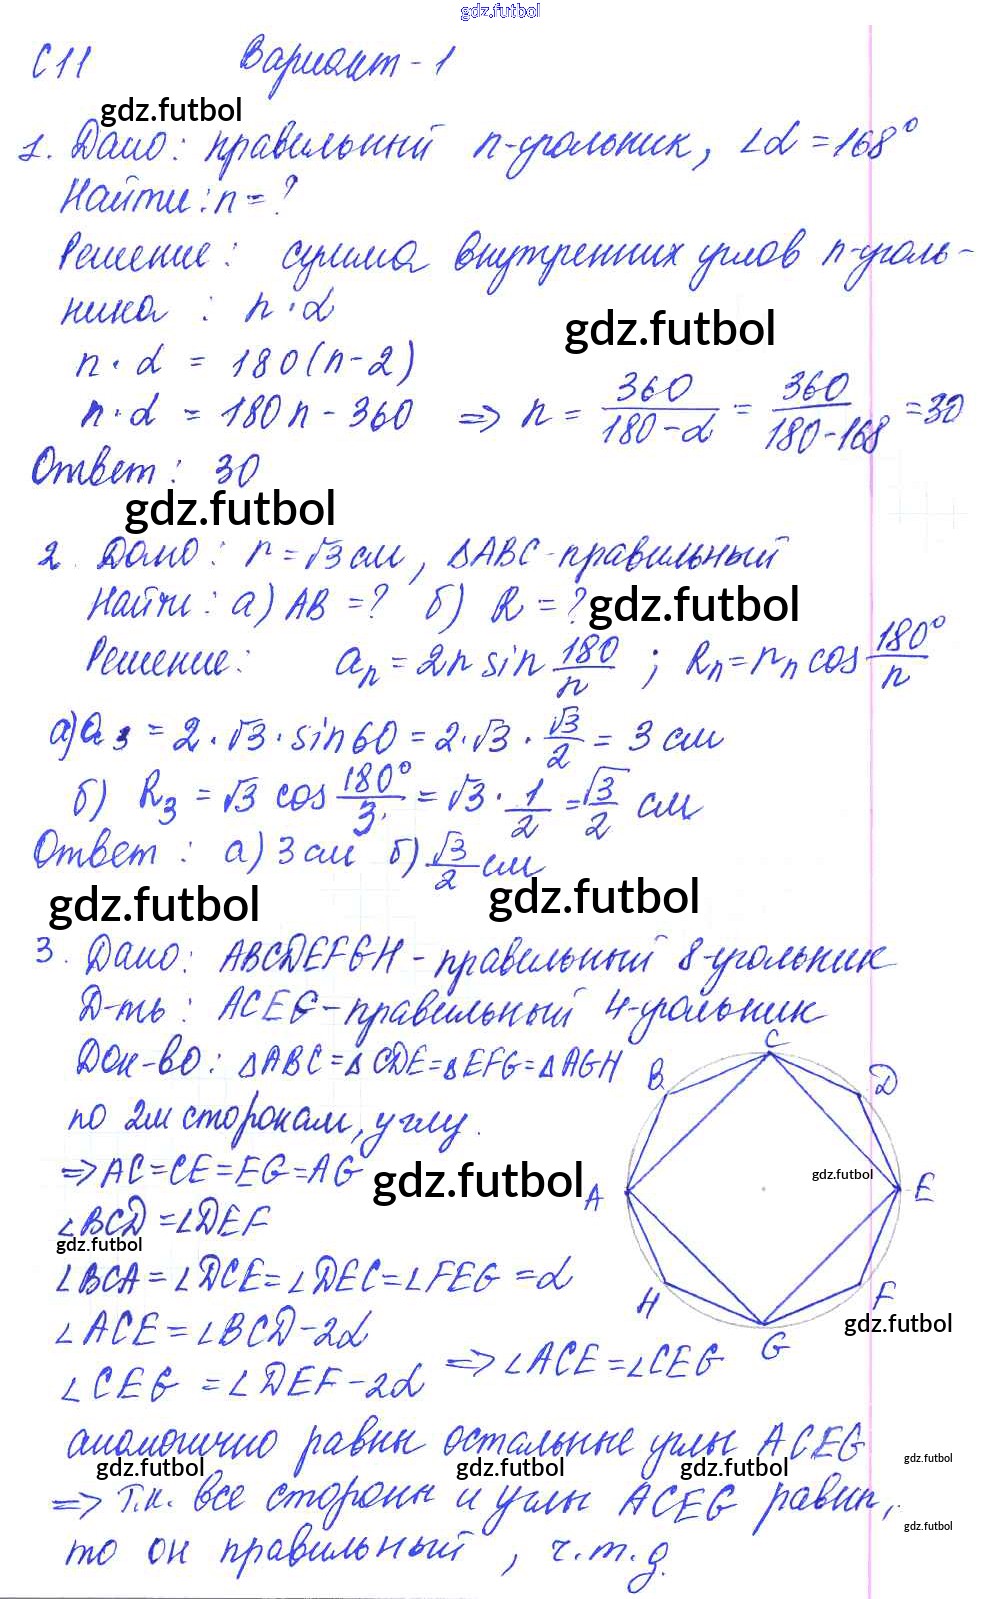 gdz.futbol
С11 Вариант-1
gdz.futbol
1. Дано: правильный n-угольник, ∠α = 168°
Найти: n = ?
Решение: сумма внутренних углов n-уголь-
ника : n · α
gdz.futbol
n · α = 180(n-2)
n · α = 180n - 360 => n = 360/(180-α) = 360/(180-168) = 30
Ответ: 30
gdz.futbol
2. Дано: r = √3 см, ΔABC-правильный
Найти: а) AB = ? б) R = ?
gdz.futbol
Решение: aₙ = 2r sin 180/n ; Rₙ = rₙ cos 180°/n
а) a₃ = 2 · √3 · sin60 = 2 · √3 · √3/2 = 3 см
б) R₃ = √3 cos 180°/3 = √3 · 1/2 = √3/2 см
Ответ: а) 3 см б) √3/2 см
gdz.futbol gdz.futbol
3. Дано: ABCDEFGH - правильный 8-угольник
Д-ть: ACEG - правильный 4-угольник
Док-во: ΔABC = ΔCDE = ΔEFG = ΔAGH
по 2м сторонам, углу.
=> AC = CE = EG = AG
gdz.futbol
∠BCD = ∠DEF
gdz.futbol
∠BCA = ∠DCE = ∠DEC = ∠FEG = α
∠ACE = ∠BCD - 2α
∠CEG = ∠DEF - 2α => ∠ACE = ∠CEG
C
B D
gdz.futbol
A E
H F
gdz.futbol
G
аналогично равны остальные углы ACEG
gdz.futbol gdz.futbol gdz.futbol gdz.futbol
=> т.к. все стороны и углы ACEG равны,
gdz.futbol
то он правильный, ч.т.д.